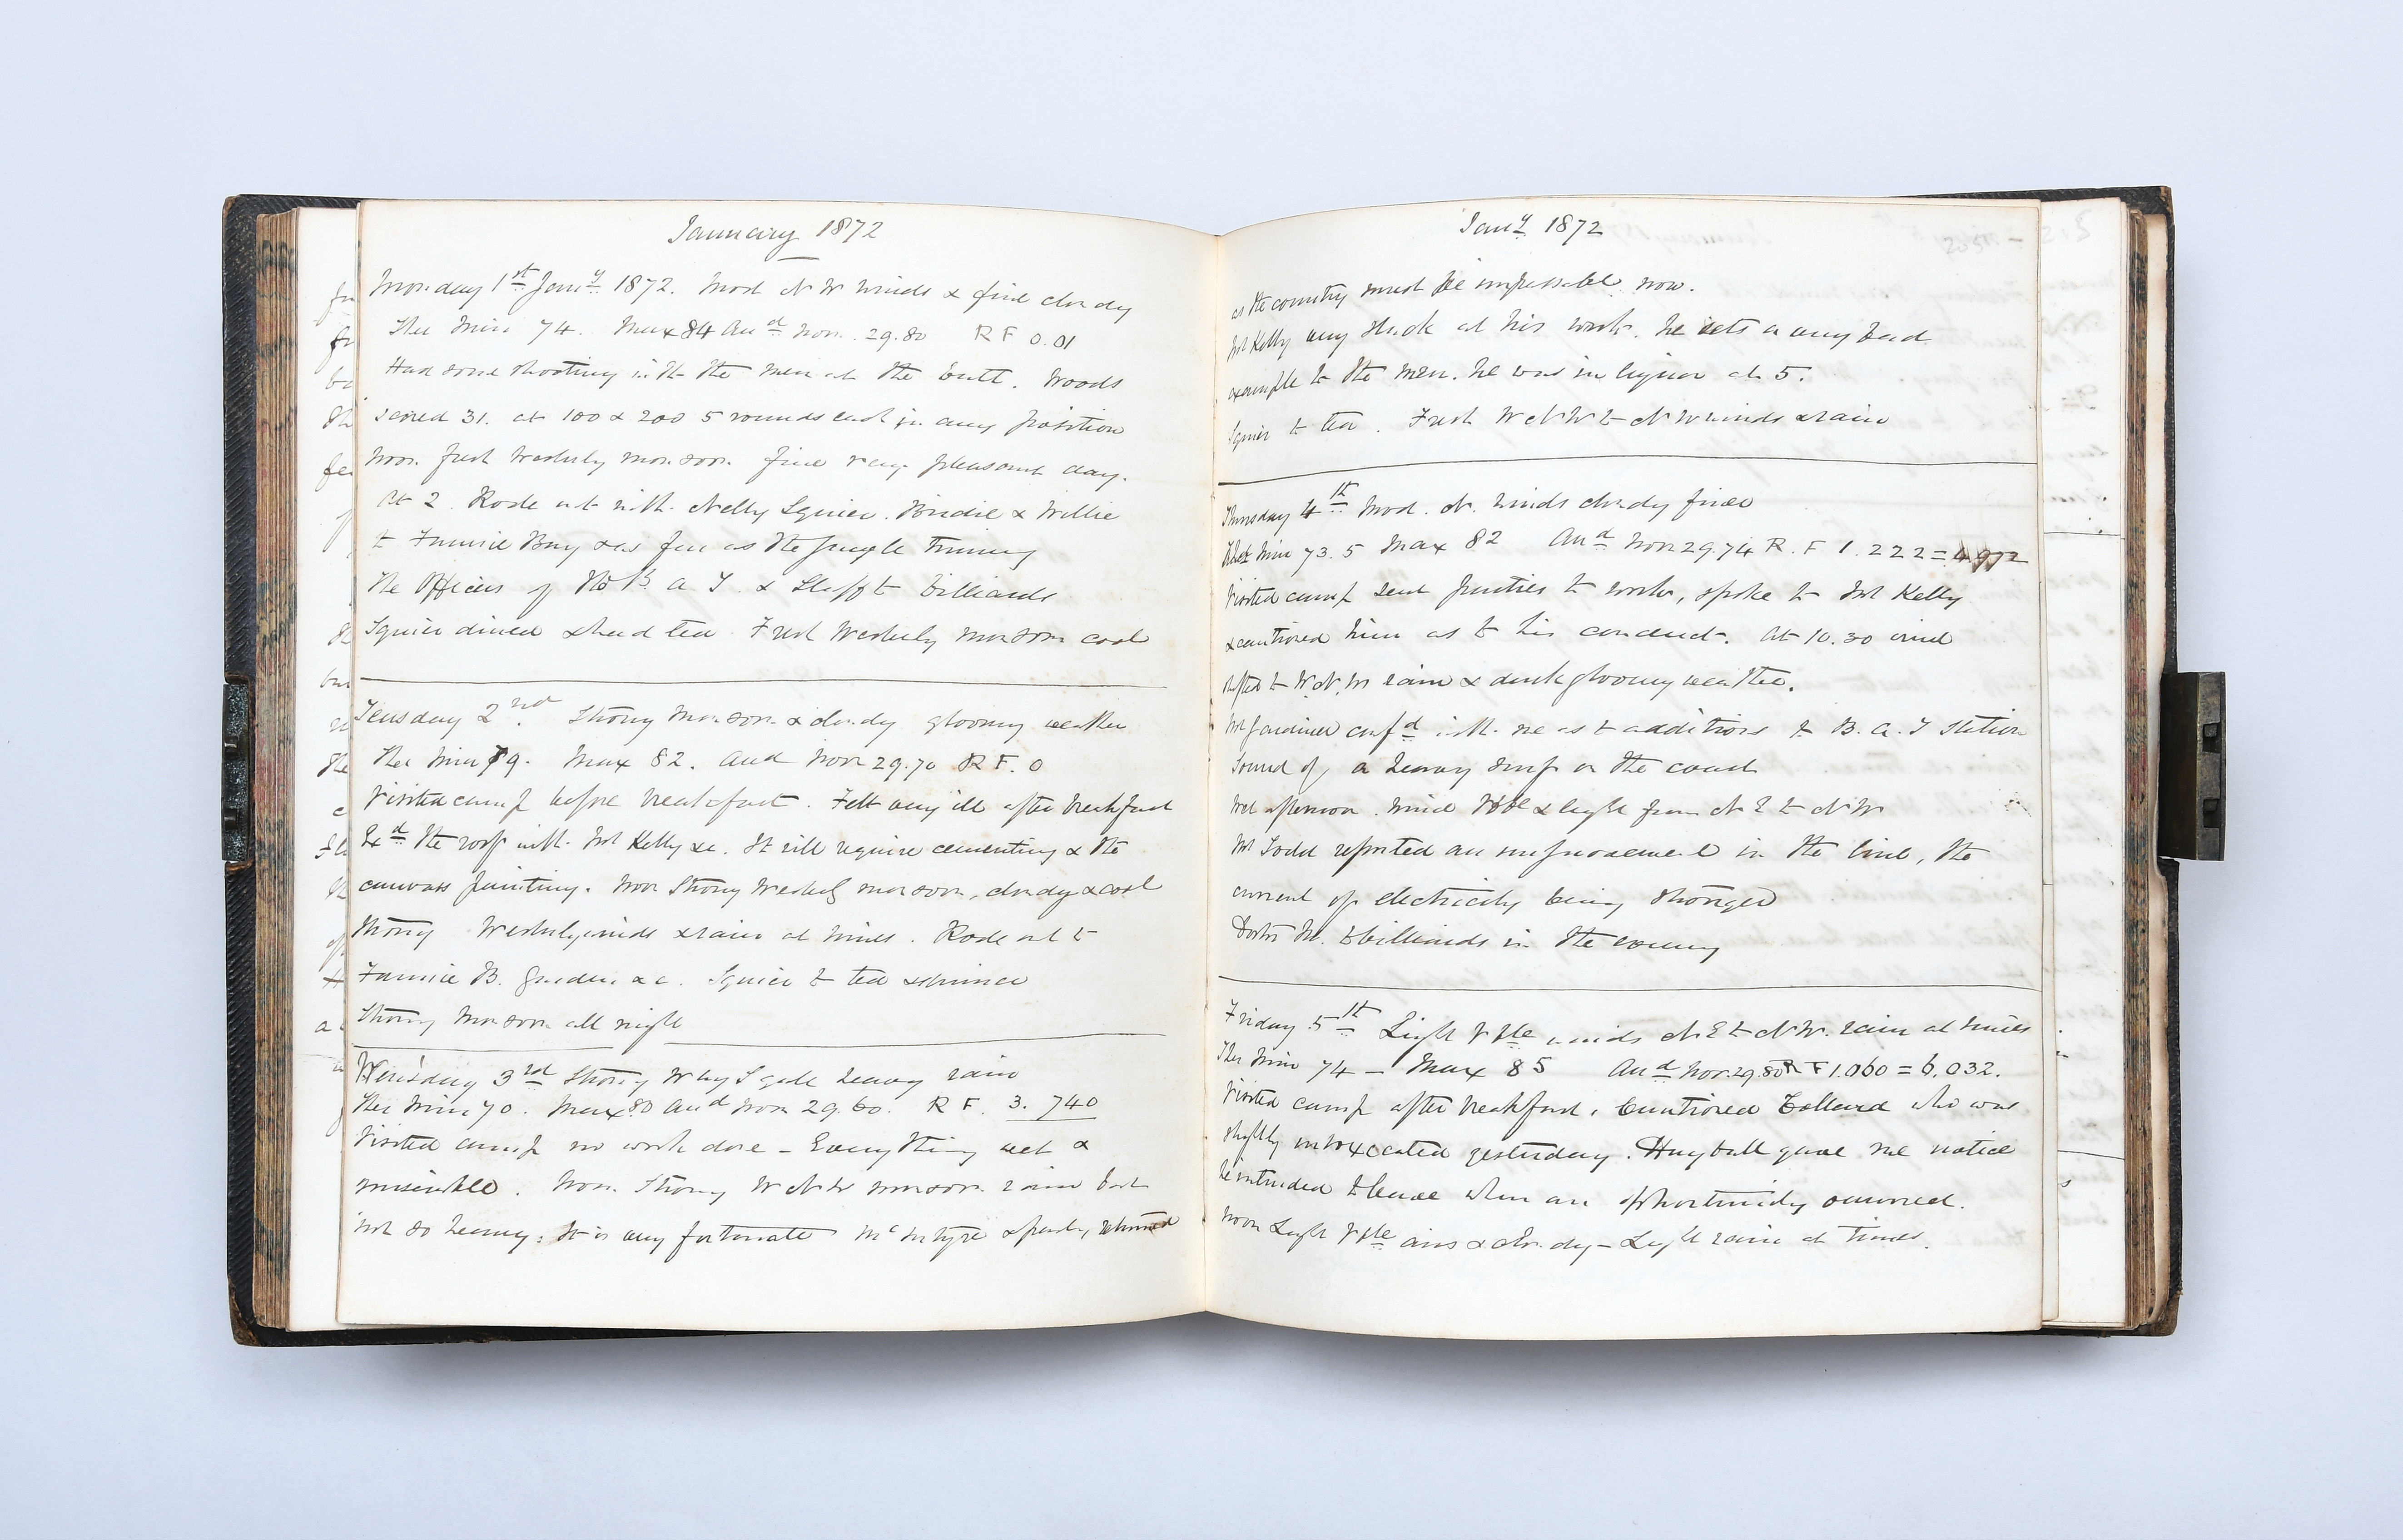 January 1872
Monday 1st Jany 1872. Mod N W winds & fine cloudy
Ther Min 74. Max 84 And Noon. 29.80 R F 0.01
Had some shooting with the men at the butt. Woods
scored 31. at 100 & 200 5 rounds each in any position
Noon fresh Westerly monsoon fine very pleasant day.
At 2 Rode out with Nelly Squier. Birdie & Willie
to Fannie Bay & as far as the jungle
The Officers of the B A T. & Staff to billiards
Squier dined & had tea Fresh Westerly monsoon cool
Teusday 2nd. Strong Monsoon & cloudy gloomy weather
Ther Min 79. Max 82. And Noon 29.70 R F. 0
Visited camp before breakfast. Felt very ill after breakfast
Exd the roof with Mr Kelly &c. It will require cementing & the
canvass painting. Noon Strong Westerly monsoon, cloudy & cool
Strong Westerly winds & rain at times. Rode out to
Fannie B. Garden &c. Squier to tea & dinner
Strong Monsoon all night
Wensday 3rd Strong W by S gale heavy rain
Ther Min 70. Max 80 And Noon 29.60. R F. 3.740
Visited camp no work done - Everything wet &
miserable. Noon. Strong W N W monsoon rain but
not so heavy: It is very fortunate McIntyre & party returned
Jany 1872
as the country must be impassable now.
Mr Kelly very slack at his work. he sets a very bad
example to the men. he was in liquor at 5.
Squier to tea. Fresh W N W to N W winds & rain
Thursday 4th Mod. N. winds cloudy fine
Ther Min 73.5 Max 82 And Noon 29.74 R.F 1.222 = 4.972
Visited camp sent parties to work, spoke to Mr Kelly
& cautioned him as to his conduct. At 10.30 wind
shifted to W.N.W rain & dark gloomy weather.
Mr Gardiner confd with me as to additions to B.A.T Station
Sound of a heavy surf on the coast
Wet afternoon. Wind Vble & light from N E to N W
Mr Todd reported an improvement in the line, the
current of electricity being stronger
Doctor M. to billiards in the evening
Friday 5th Light Vble winds N E to N W. rain at times
Ther Min 74 - Max 85 And Noon 29.80 R F 1.060 = 6.032.
Visited camp after breakfast, Cautioned Collard who was
slightly intoxicated yesterday. Huyball gave me notice
he intended to leave when an opportunity occurred.
Noon Light Vble airs & cloudy - Light rain at times.